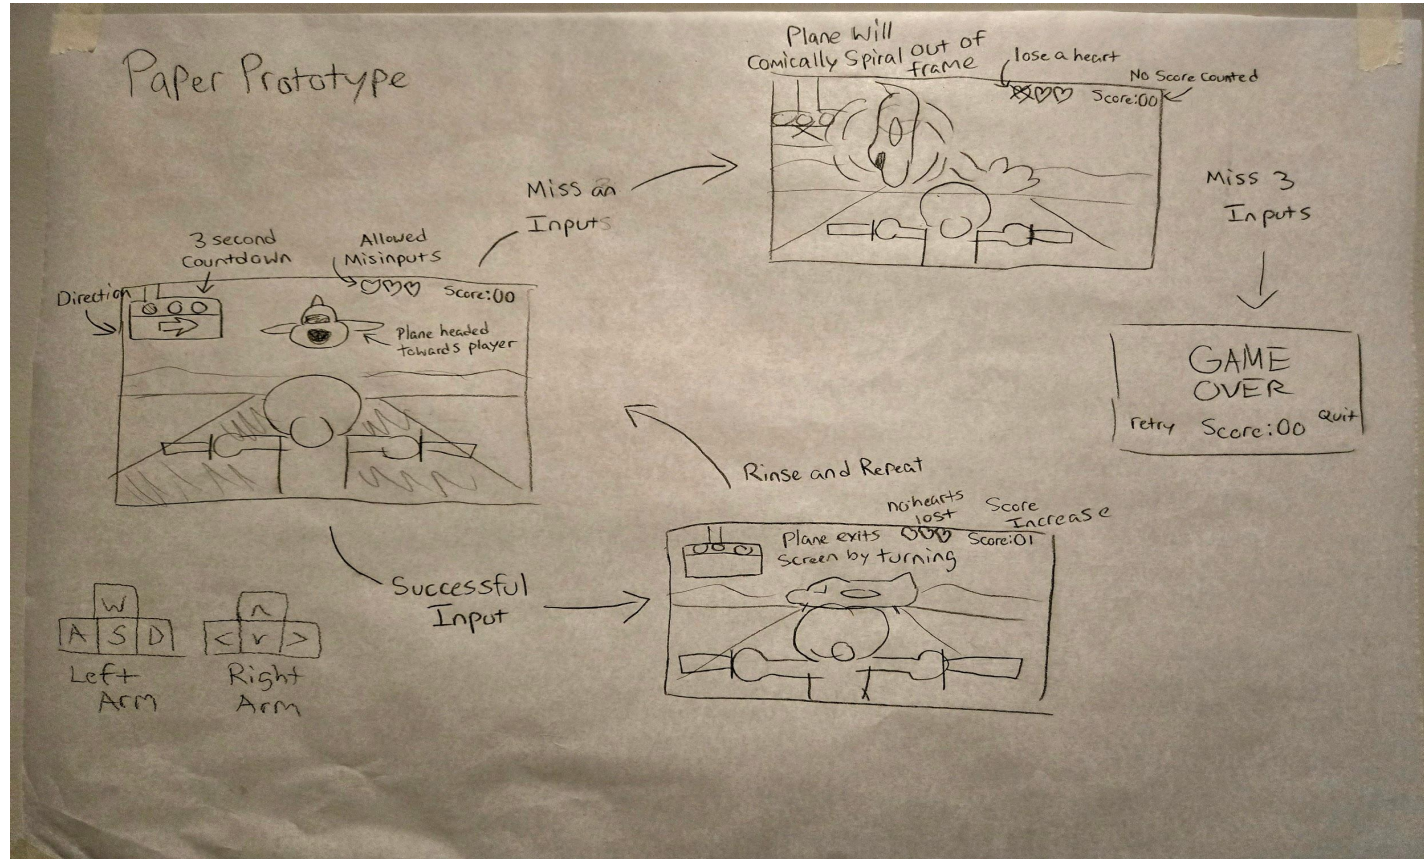 Paper Prototype
Plane Will
Comically Spiral out of
frame
lose a heart
No Score Counted
Score:00
Miss an
Inputs
Miss 3
Inputs
3 second
Countdown
Allowed
Misinputs
Direction
Score:00
Plane headed
towards player
GAME
OVER
retry Score:00 Quit
Rinse and Repeat
no hearts
lost
Score
Increase
Plane exits
Screen by turning
Score:01
Successful
Input
W
A S D
Left
Arm
^
< v >
Right
Arm